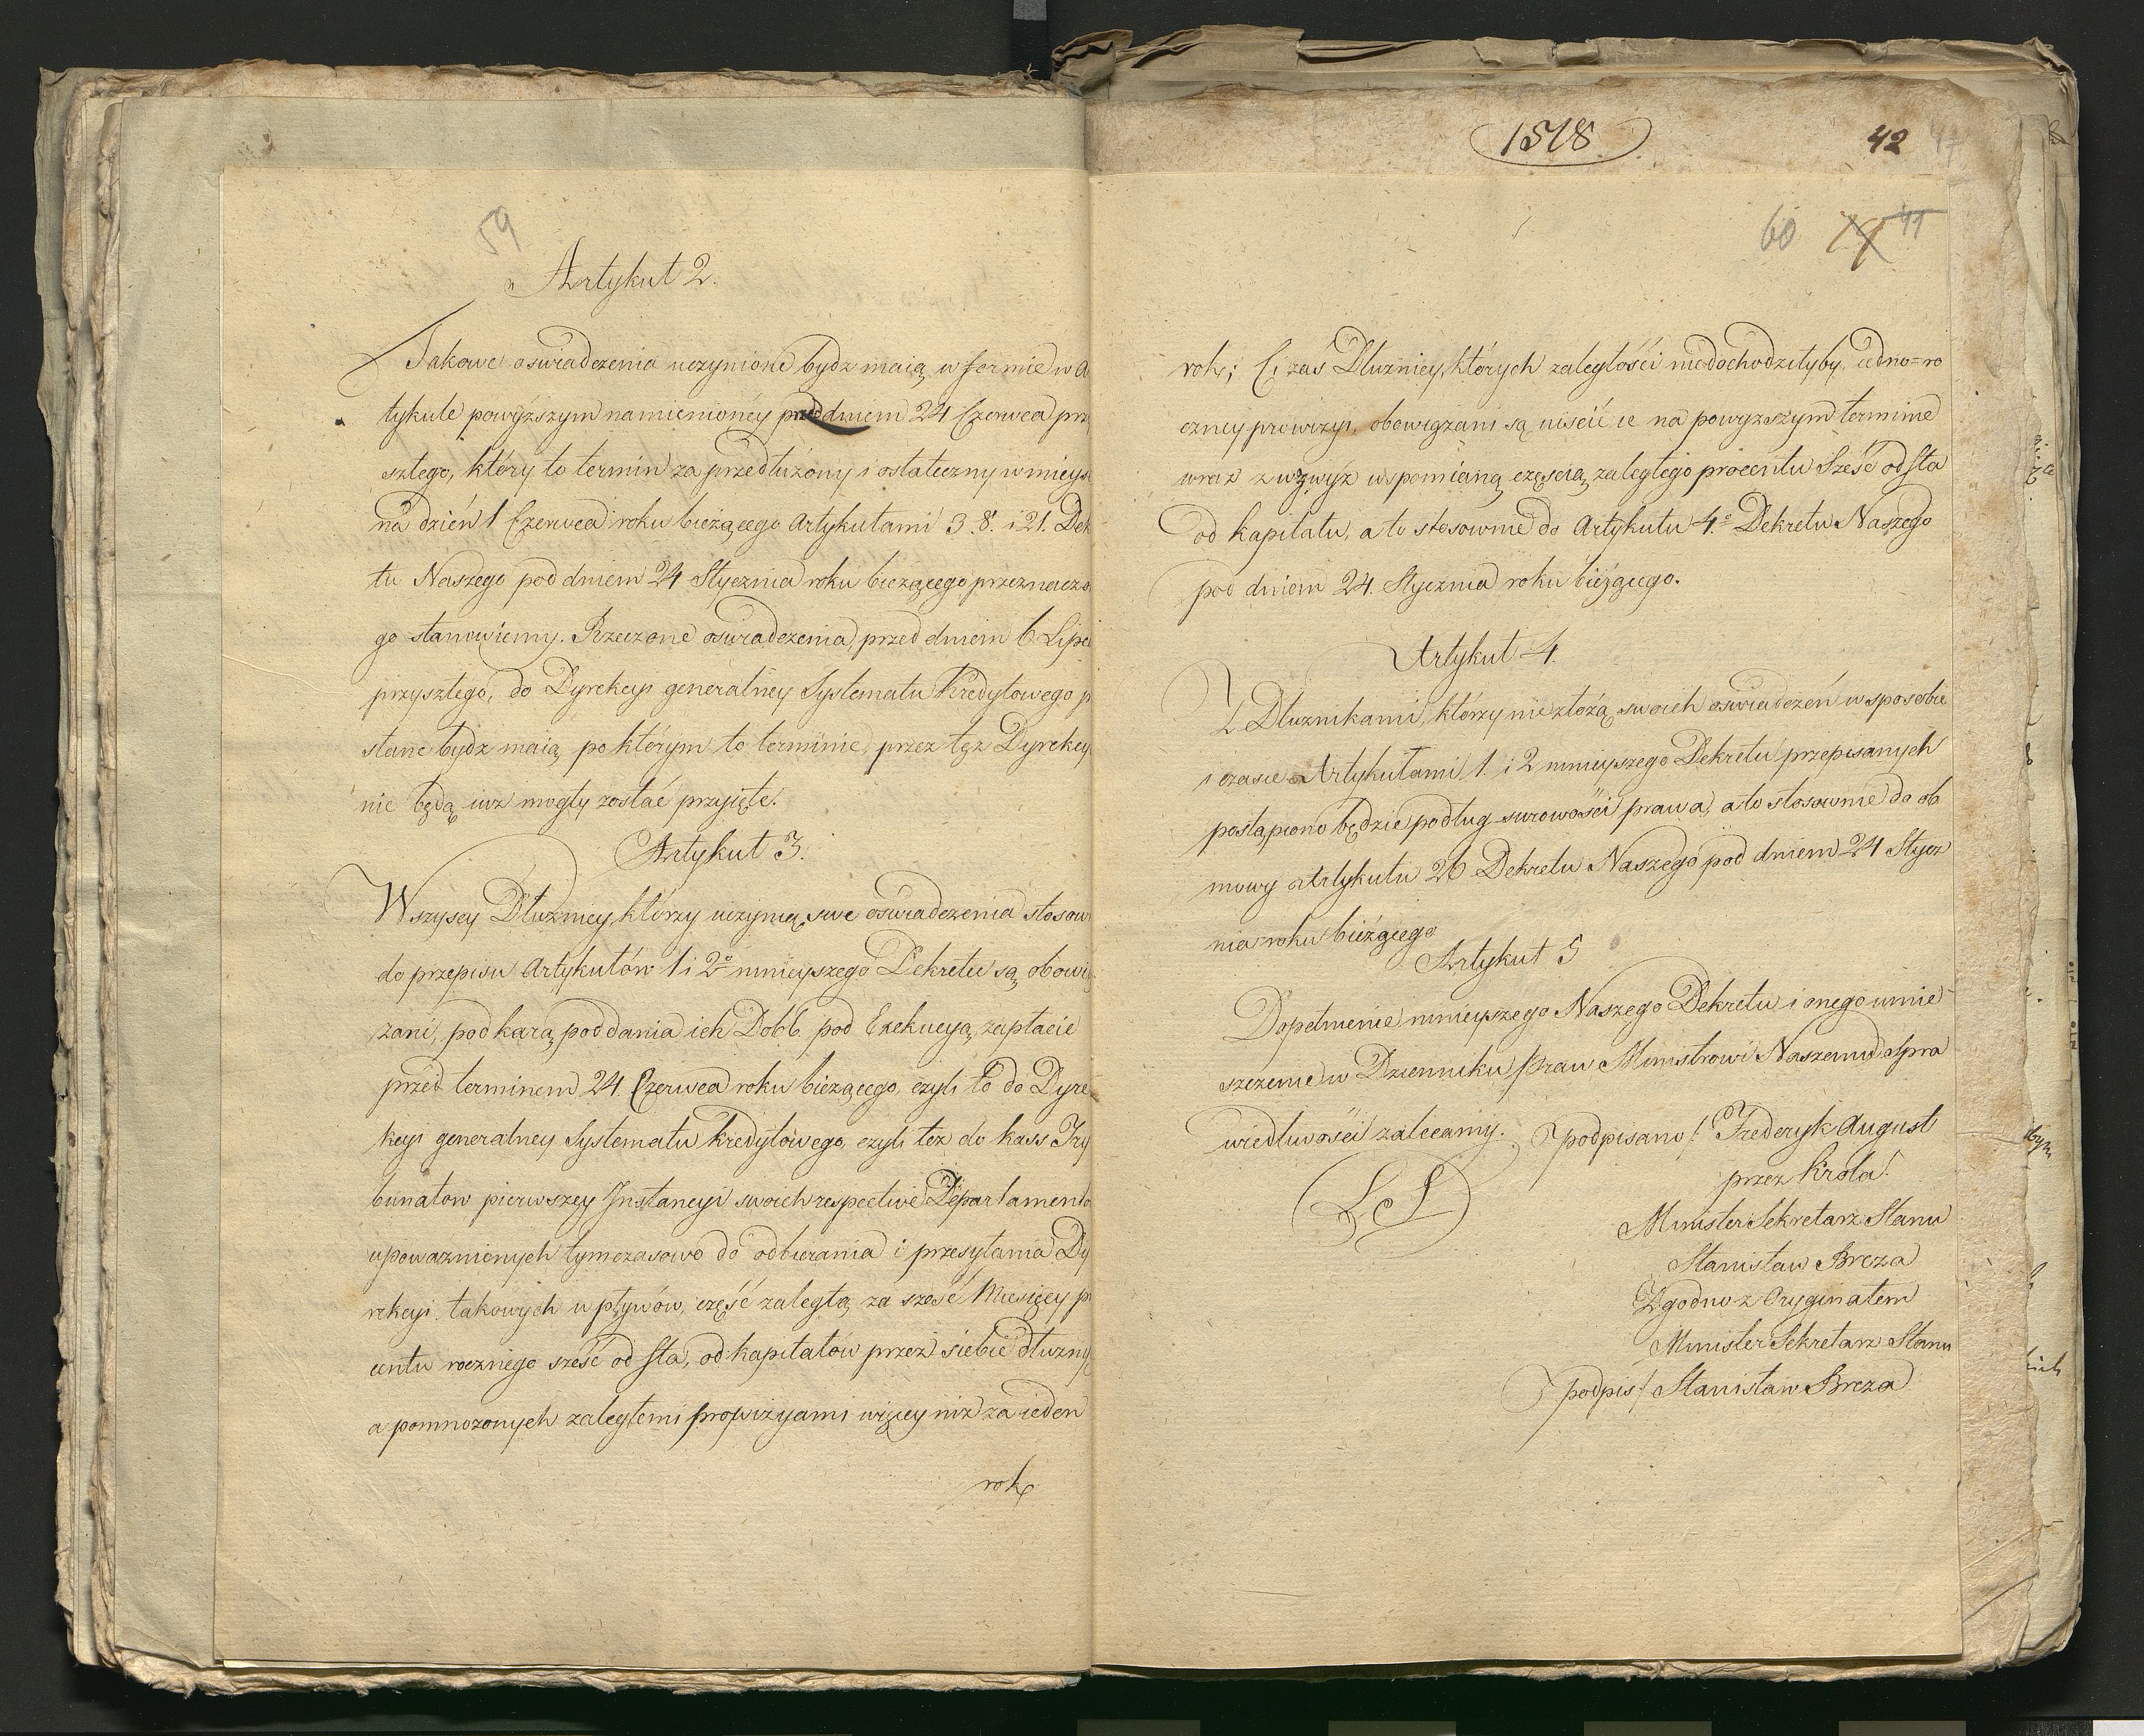 59
Artykuł 2.
Takowe oswiadczenia uczynione bydz maią w formie w A
tykule powyższym namienioney przed dniem 24 Czerwca prz
szłego, który to termin za przedłużony i ostateczny w mieysc
na dzień 1 Czerwca roku bieżącego Artykułami 3. 8. i 21. Dek
tu Naszego pod dniem 24 Stycznia roku bieżącego przeznaczo
go stanowiemy. Rzeczone oswiadczenia, przed dniem 6 Lipc
przyszłego, do Dyrekcyi generalney Systematu Kredytowego p
słane bydz maią, po którym to terminie, przez tęz Dyrekcy
nie będą iuz mogły zostać przyięte.
Artykuł 3.
Wszyscy Dłuznicy, którzy uczynią swe oswiadczenia stosow
do przepisu Artykułów 1 i 2º ninieyszego Dekretu są obowią
zani, pod karą poddania ich Dobb. pod Exekucyą, zapłacic
przed terminem 24. Czerwca roku bieżącego, czyli to do Dyre
kcyi generalney Systematu kredytowego, czyli tez do kass Try
bunałow pierwszey Instancyi swoich respective Departamento
upowaznionych tymczasowo do odbierania i przesyłania Dy
rekcyi takowych wpływów, część zaległą za sześć Miesięcy p
centu rocznego sześć od sta, od kapitałów przez siebie dłuzny
a pomnozonych zaległemi prowizyami więcey niż za ieden
rok,
1518.
42
60 41
rok; Ci zaś Dłuznicy, których zaległości niedochodziłyby iedno=ro
czney prowizyi, obowiązani są uiścić ie na powyzszym terminie
wraz z wzwyż wspomianą częścią zaległego procentu Sześć od Sta
od kapitału, a to stosownie do Artykułu 4.º Dekretu Naszego
pod dniem 24. Stycznia roku bieżącego.
Artykuł 4.
Z Dłuznikami, którzy nie złożą swoich oswiadczeń w sposobie
i czasie Artykułami 1. i 2 ninieyszego Dekretu przepisanych
postąpiono będzie podług surowości prawa, a to stosownie do ob
mowy Artykułu 26 Dekretu Naszego pod dniem 24 Stycz
nia roku bieżącego
Artykuł 5
Dopełnienie ninieyszego Naszego Dekretu i onego umie
szczenie w Dzienniku Praw Ministrowi Naszemu Spra
wiedliwości zalecamy. podpisano/ Frederyk August
przez Krola!
L S
Minister Sekretarz Stanu
Stanisław Breza
Zgodno z Oryginałem
Minister Sekretarz Stanu
podpis/ Stanisław Breza